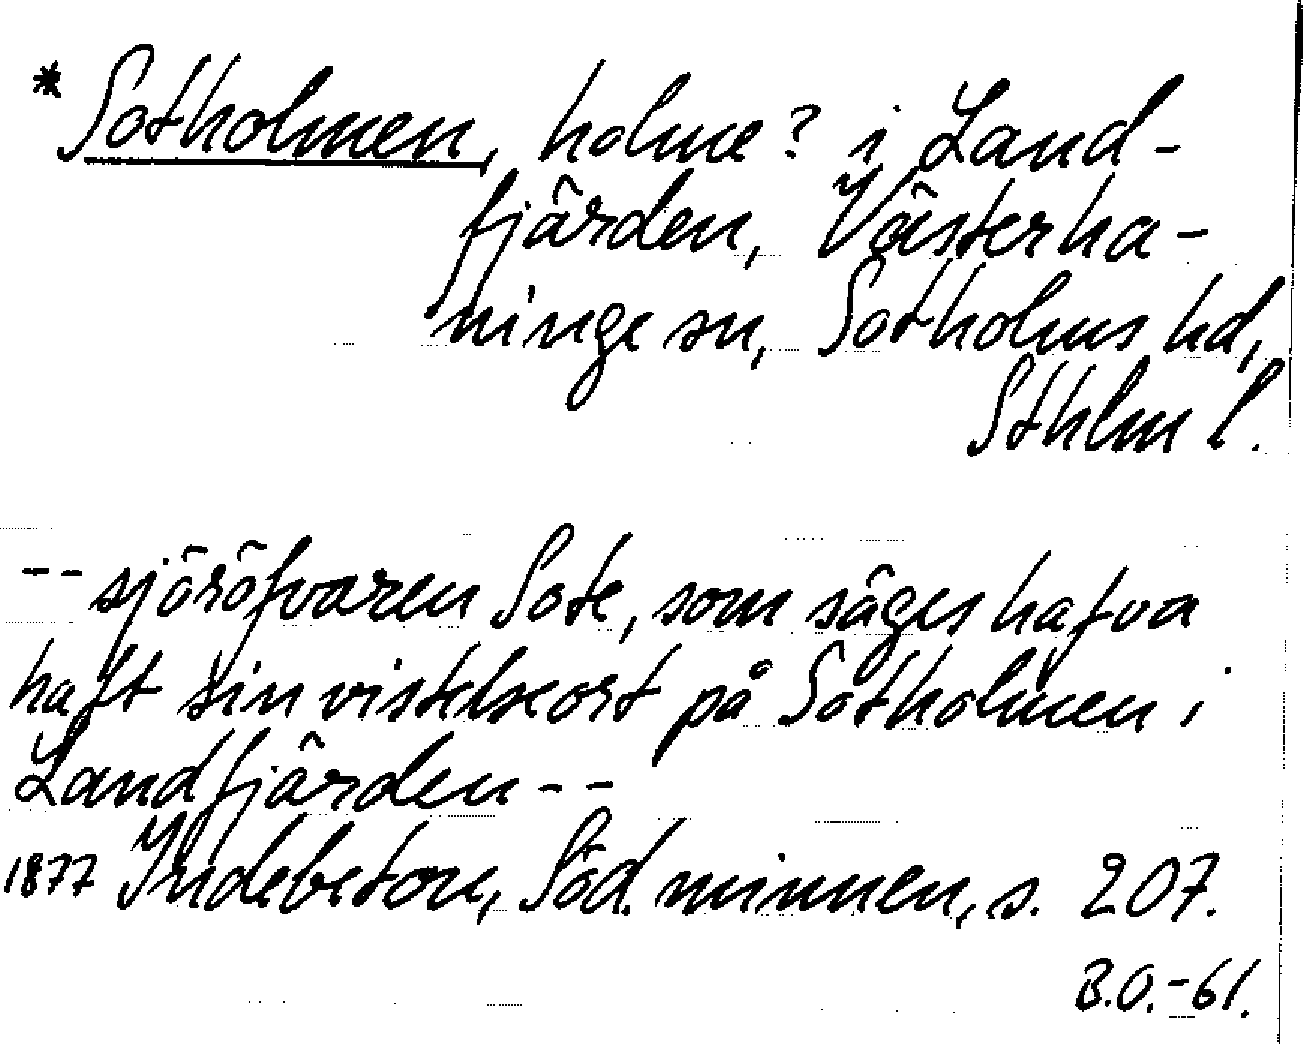 * Sotholmen, holme? i Land-
fjärden, Västerha-
ninge sn, Sotholms hd,
Sthlm l.
-- sjöröfvaren Sote, som säges hafva
haft sin vistelseort på Sotholmen i
Landfjärden --
1877 Indebetou, Söd. minnen, s. 207.
B.O.-61.